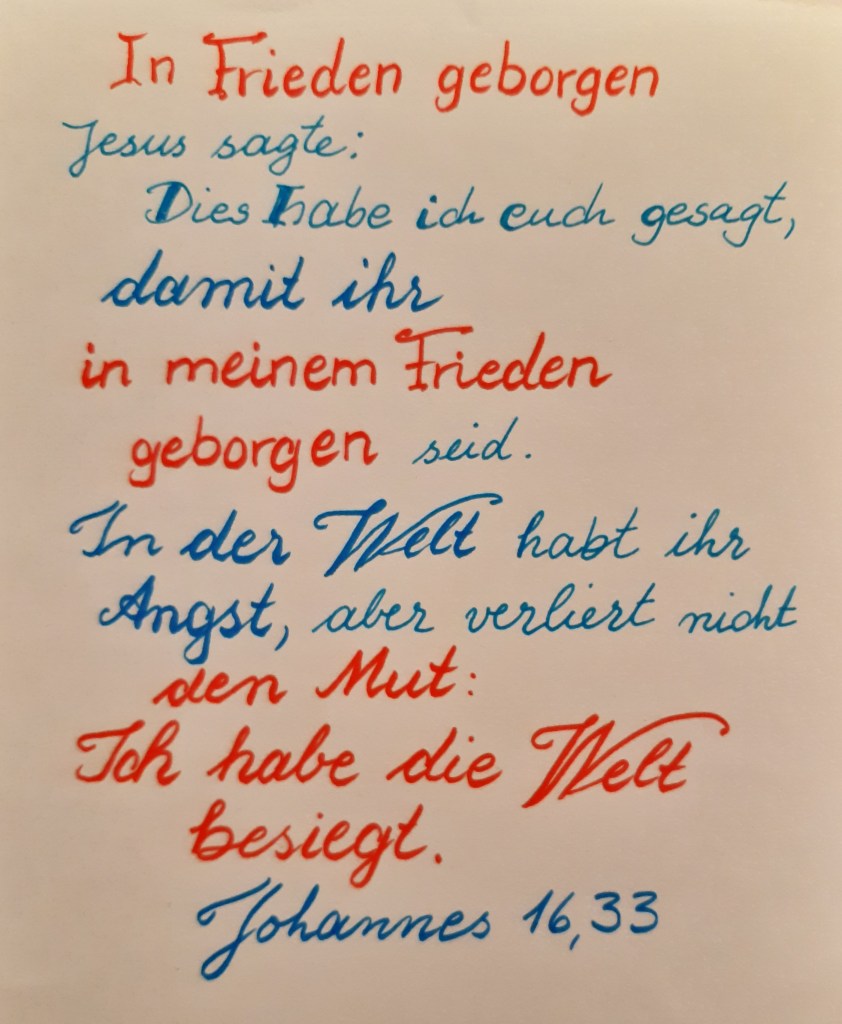 In Frieden geborgen
Jesus sagte:
Dies habe ich euch gesagt,
damit ihr
in meinem Frieden
geborgen seid.
In der Welt habt ihr
Angst, aber verliert nicht
den Mut:
Ich habe die Welt
besiegt.
Johannes 16,33